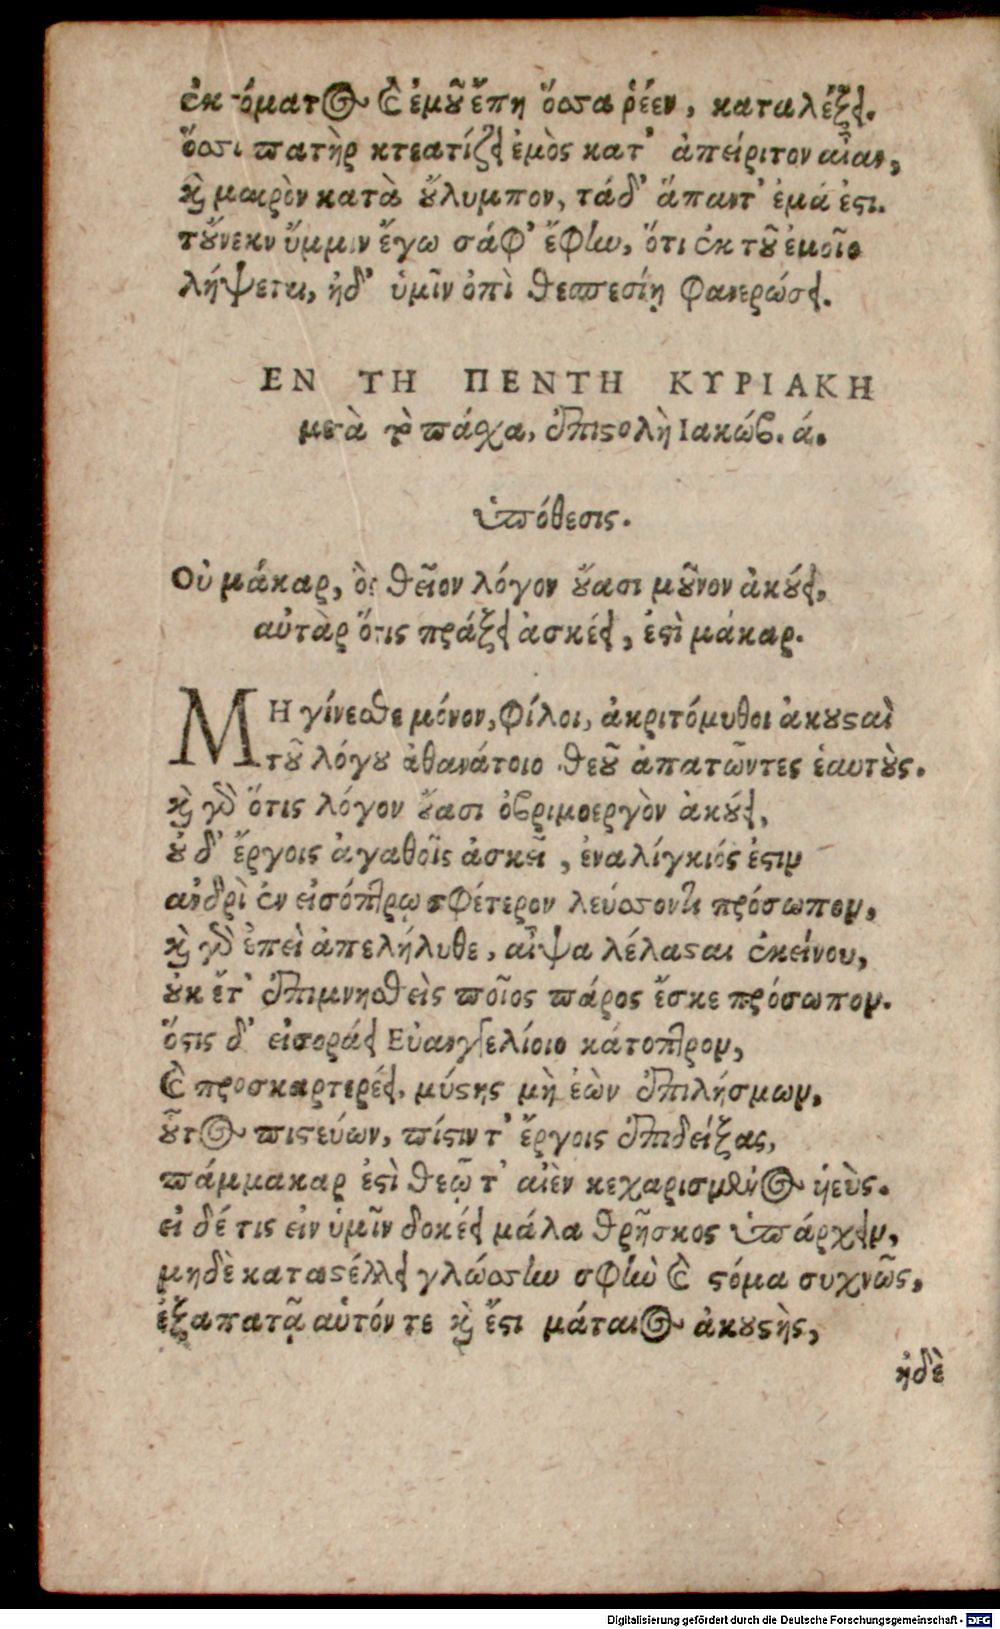 ἐκ στόματος ἐμοῦ ἔπη ὅσσα ῥέεν, καταλέξει.
ὅσσι πατὴρ κτεατίζει ἐμὸς κατ' ἀπείριτον αἶαν,
καὶ μακρὸν κατὰ οὔλυμπον, τάδ' ἅπαντ' ἐμά ἐστι.
τοὔνεκν ὔμμιν ἔγω σάφ' ἔφην, ὅτι ἐκ τοῦ ἐμοῖο
λήψεται, ἠδ' ὑμῖν ὀπὶ θεσπεσίῃ φανερώσει.
ΕΝ ΤΗ ΠΕΝΤΗ ΚΥΡΙΑΚΗ
μετὰ τὸ πάσχα, ἐπιστολὴ Ιακώβ. ά.
ὑπόθεσις.
Οὐ μάκαρ, ὃς θεῖον λόγον οὔασι μοῦνον ἀκούει,
αὐτὰρ ὅτις πράξει ἀσκέει, ἐστὶ μάκαρ.
ΜΗ γίνεσθε μόνον, φίλοι, ἀκριτόμυθοι ἀκουσταὶ
τοῦ λόγου ἀθανάτοιο θεοῦ ἀπατῶντες ἑαυτούς.
καὶ γὰρ ὅτις λόγον οὔασι ὀβριμοεργὸν ἀκούει,
οὐ δ' ἔργοις ἀγαθοῖς ἀσκεῖ, ἐναλίγκιός ἐστιν
ἀνδρὶ ἐν εἰσόπτρῳ σφέτερον λεύσσοντι πρόσωπον,
καὶ γὰρ ἐπεὶ ἀπελήλυθε, αἶψα λέλασται ἐκείνου,
οὐκ ἔτ' ἐπιμνησθεὶς ποῖος πάρος ἔσκε πρόσωπον.
ὅστις δ' εἰσοράει Εὐαγγελίοιο κάτοπτρον,
καὶ προσκαρτερέει, μύστης μὴ ἐὼν ἐπιλήσμων,
οὗτος πιστεύων, πίστιν τ' ἔργοις ἐπιδείξας,
πάμμακαρ ἐστὶ θεῷ τ' αἰὲν κεχαρισμένος ἡεύς.
εἰ δέ τις εἰν ὑμῖν δοκέει μάλα θρῆσκος ὑπάρχειν,
μηδὲ καταστέλλει γλώσσην σφὴν καὶ στόμα συχνῶς,
ἐξαπατᾷ αὑτόν τε καὶ ἔστι μάταιος ἀκουστής,
ἠδὲ
Digitalisierung gefördert durch die Deutsche Forschungsgemeinschaft - DFG